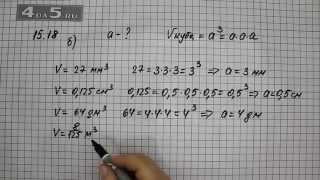 4DA5.RU
15.18 б) a-? Vкуба = a³ = a·a·a
V = 27 мм³ 27 = 3·3·3 = 3³ ⇒ a = 3 мм
V = 0,125 см³ 0,125 = 0,5·0,5·0,5 = 0,5³ ⇒ a = 0,5 см
V = 64 дм³ 64 = 4·4·4 = 4³ ⇒ a = 4 дм
V = 8/125 м³